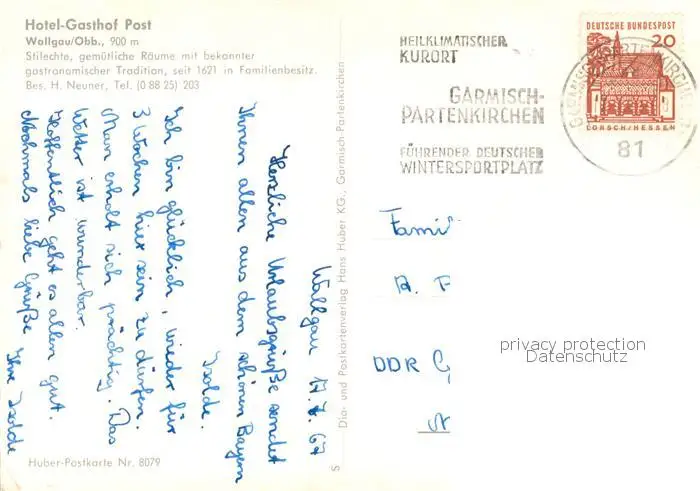 Hotel-Gasthof Post
Wallgau/Obb., 900 m
Stilechte, gemütliche Räume mit bekannter
gastronomischer Tradition, seit 1621 in Familienbesitz.
Bes. H. Neuner, Tel. (0 88 25) 203
Wallgau 17.7.67
Herzliche Urlaubsgrüße sendet
Ihnen allen aus dem schönen Bayern
Isolde.
Ich bin glücklich, wieder für
3 Wochen hier sein zu dürfen.
Man erholt sich prächtig. Das
Wetter ist wunderbar.
Hoffentlich geht es allen gut.
Nochmals liebe Grüße
Ihre Isolde
Huber-Postkarte Nr. 8079
Dia- und Postkartenverlag Hans Huber KG., Garmisch-Partenkirchen
S
HEILKLIMATISCHER
KURORT
GARMISCH-
PARTENKIRCHEN
FÜHRENDER DEUTSCHER
WINTERSPORTPLATZ
DEUTSCHE BUNDESPOST
20
LORSCH/HESSEN
GARMISCH-PARTENKIRCHEN
81
Famil
R. F
DDR G
privacy protection
Datenschutz